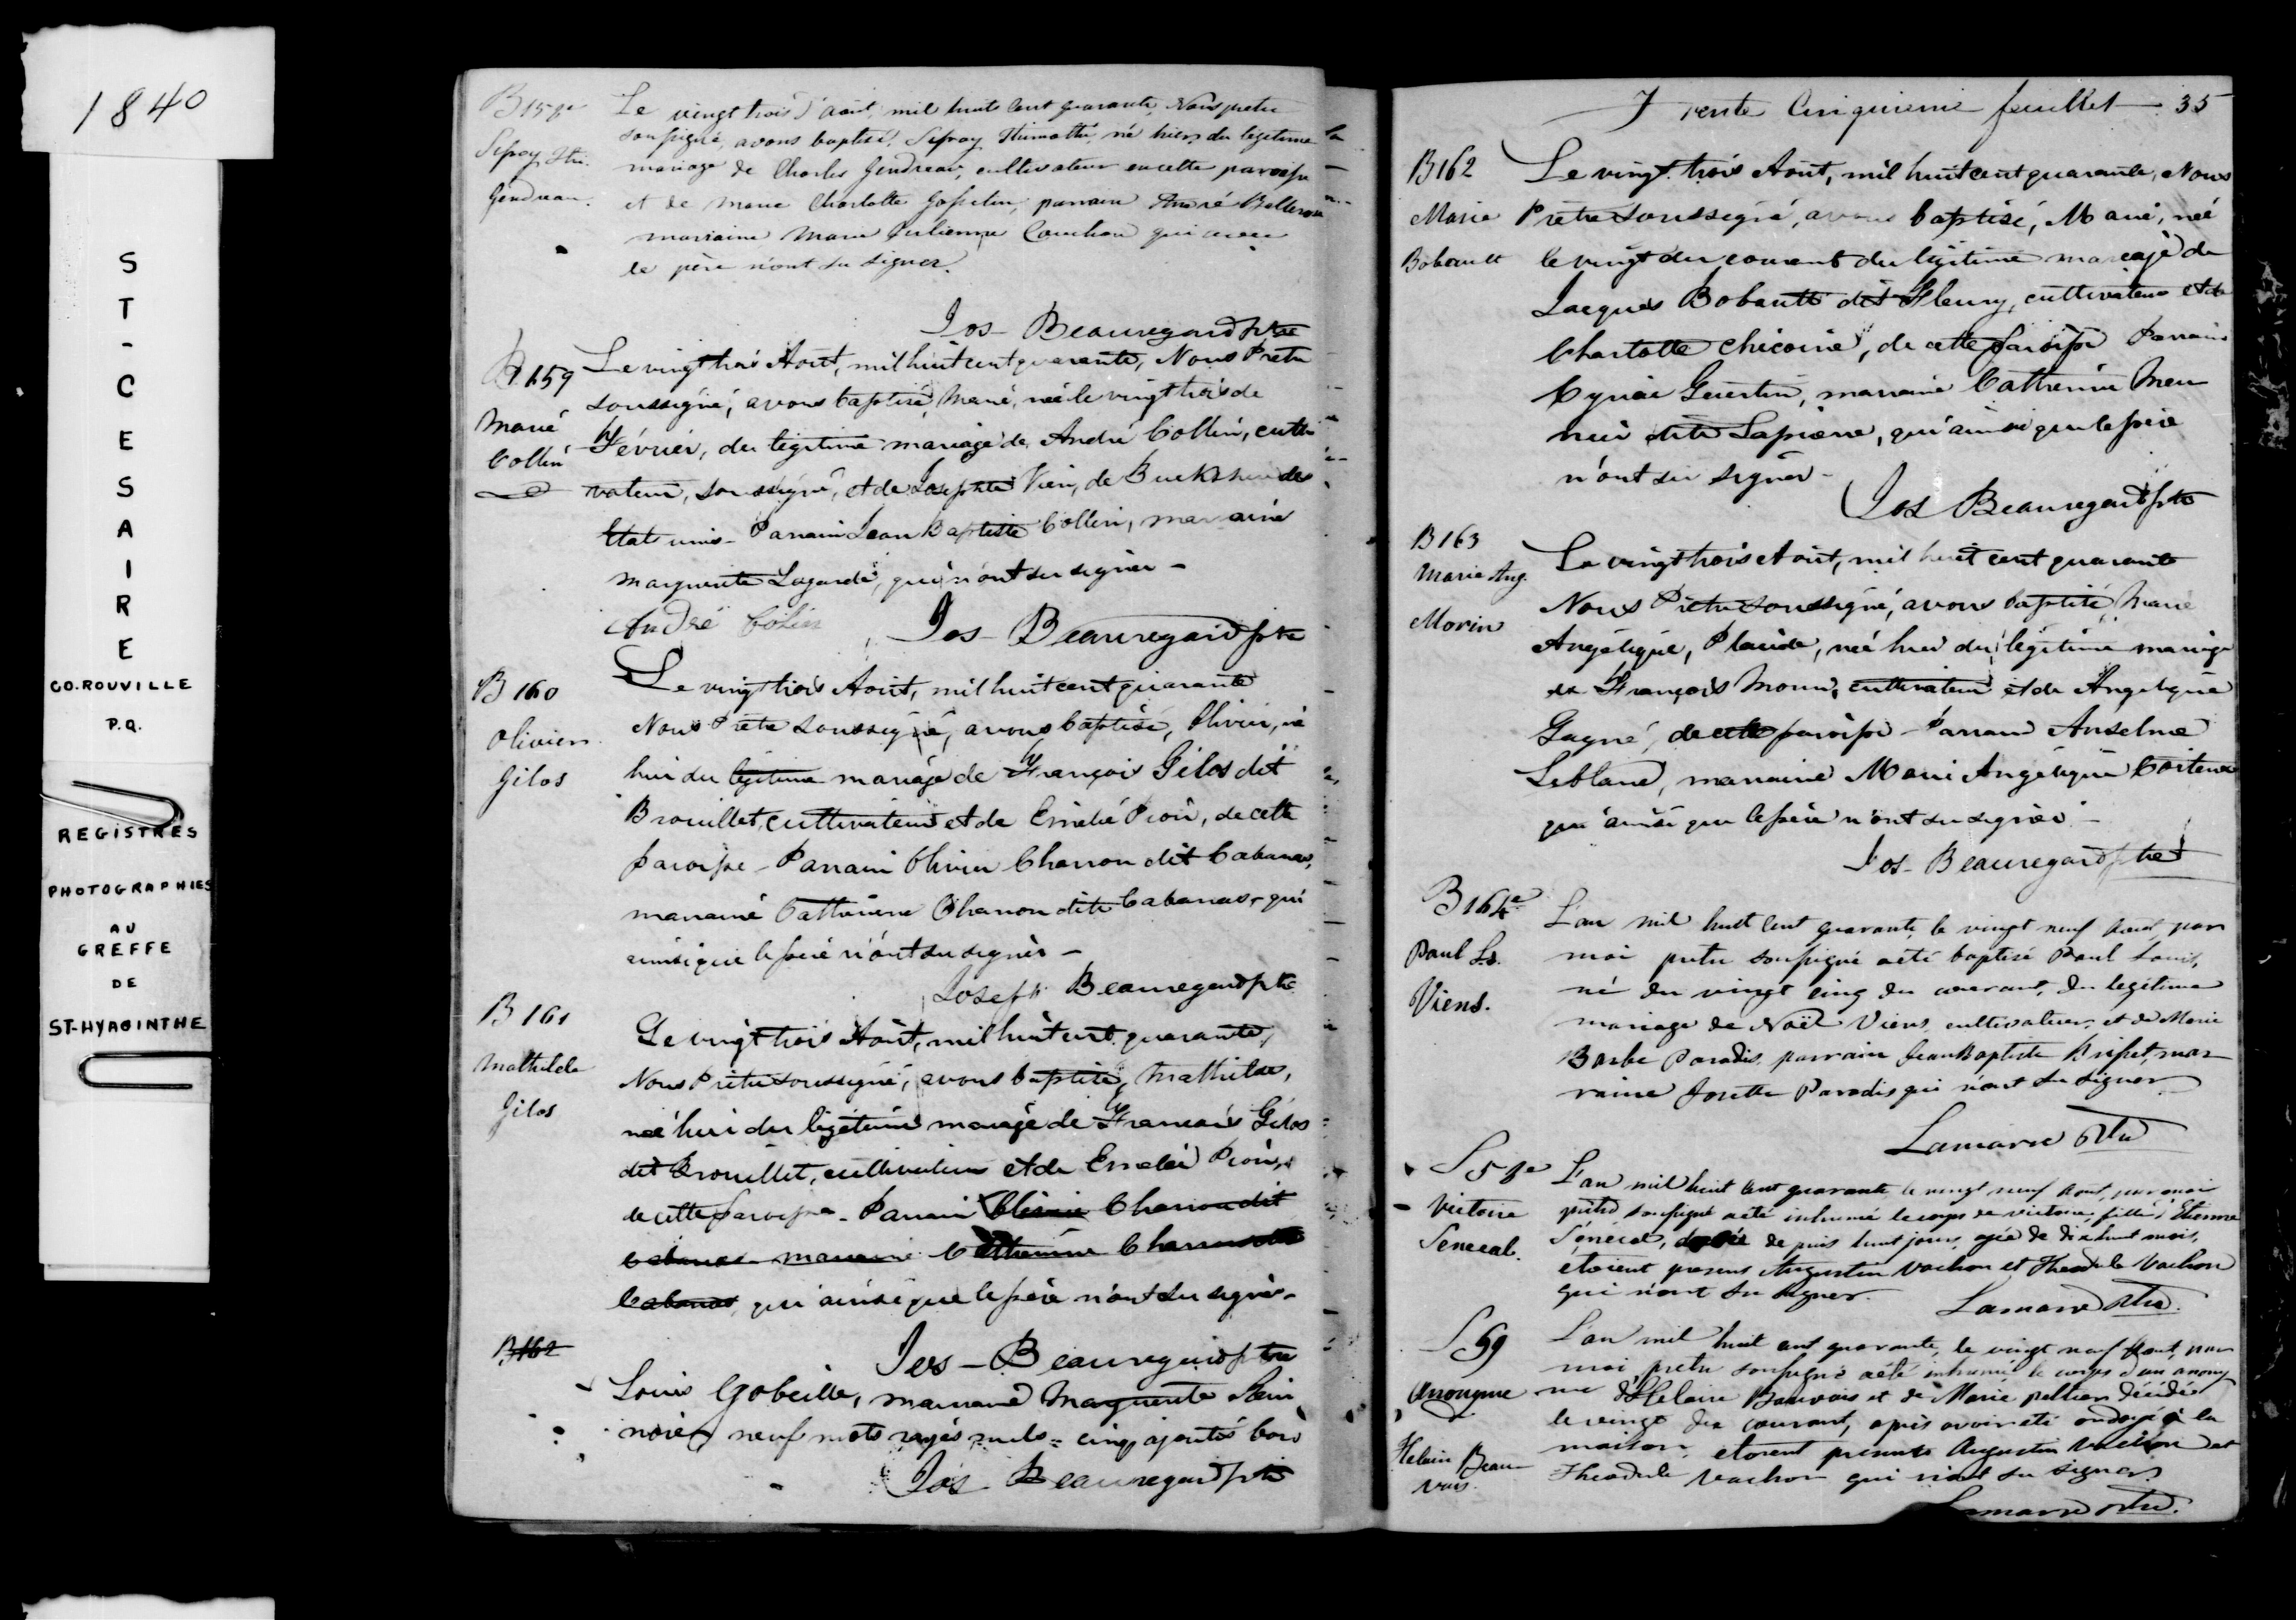 1840
S
T
-
C
E
S
A
I
R
E
CO. ROUVILLE
P.Q.
REGISTRES
PHOTOGRAPHIES
AU
GREFFE
DE
ST-HYACINTHE
B158e
Gendreau.
Le vingt trois d'août, mil huit cent quarante, Nous prêtre
soussigné, avons baptisé, né hier, du légitime
mariage de Charles Gendreau, cultivateur en cette paroisse
et de Marie Charlotte Gosselin, parrain André
marraine Marie Julienne Cauchon qui avec
le père n'ont su signer.
Jos - Beauregard ptre
B159
Marie
Collin
Le vingt trois Août, mil huit cent quarante, Nous Prêtre
soussigné, avons baptisé, Marie, née le vingt trois de
Février, du légitime mariage de André Collin, culti
vateur, soussigné, et de Josephte Vien, de des
Etats unis - Parrain Jean Baptiste Collin, marraine
Marguerite Lagarde, qui n'ont su signer -
André Colin
Jos - Beauregard ptre
B160
Olivier
Gilos
Le vingt trois Août, mil huit cent quarante
Nous Prêtre soussigné, avons baptisé, Olivier, né
hier du légitime mariage de François Gilos dit
Brouillet, cultivateur et de Emelie Pion, de cette
paroisse - Parrain Olivier Charron dit Cabanas,
marraine Catherine Charron dite Cabanas, qui
ainsi que le père n'ont su signer -
Joseph Beauregard ptre
B161
Mathilde
Gilos
Le vingt trois Août, mil huit cent quarante,
Nous Prêtre soussigné, avons baptisé, Mathilde,
née hier du légitime mariage de François Gilos
dit Brouillet, cultivateur et de Emelie Pion,
de cette paroisse - Parrain Olivier Charron dit
Cabanas marraine Catherine Charron dite
Cabanas, qui ainsi que le père n'ont su signer -
B162
Jos - Beauregard ptre
Louis Gobeille, marraine Marguerite
neuf mots rayés nuls = cinq ajoutés bons
Jos Beauregard ptre
Trente Cinquieme feuillet 35
B162
Marie
Bobault
Le vingt trois Août, mil huit cent quarante, Nous
Prêtre soussigné, avons baptisé, Marie, née
le vingt du courant du légitime mariage de
Jacques Bobault dit Fleury, cultivateur et de
Charlotte Chicoine, de cette paroisse Parrain
Cyriac Guertin, marraine Catherine Meu
nier dite Lapierre, qui ainsi que le père
n'ont su signer -
Jos Beauregard ptre
B163
Marie Ang.
Morin
Le vingt trois Août, mil huit cent quarante
Nous Prêtre soussigné, avons baptisé, Marie
Angélique, Placide, née hier du légitime mariage
de François Morin, cultivateur et de Angelique
Gagné, de cette paroisse - Parrain Anselme
Leblanc, marraine Marie Angélique
qui ainsi que le père n'ont su signer -
Jos - Beauregard ptre
B164e
Paul Ls.
Viens.
L'an mil huit cent quarante le vingt neuf Août, par
moi prêtre soussigné a été baptisé Paul Louis,
né du vingt cinq du courant, du légitime
mariage de Noël Viens, cultivateur, et de Marie
Barbe Paradis, parrain Jean Baptiste, mar
raine Josette Paradis qui n'ont su signer
Lamarre Ptre
S58e
Victoire
Senecal.
L'an mil huit cent quarante le vingt neuf Août, par moi
prêtre soussigné a été inhumé le corps de Victoire, fille d'Etienne
Sénécal, de puis huit jours, agée de dix huit mois,
étoient presens Augustin Vachon et Theodule Vachon
qui n'ont su signer.
Lamarre Ptre.
S59
Anonyme
Helair Beau-
vais.
L'an mil huit cent quarante, le vingt neuf Août, par
moi prêtre soussigné a été inhumé le corps d'un anony
me d'Helaire Bauvais et de Marie peltier décédé
le vingt du courant, après avoir été ondoyé à la
maison, etoient presents Augustin Vachon et
Theodule Vachon qui n'ont su signer
Lamarre Ptre.